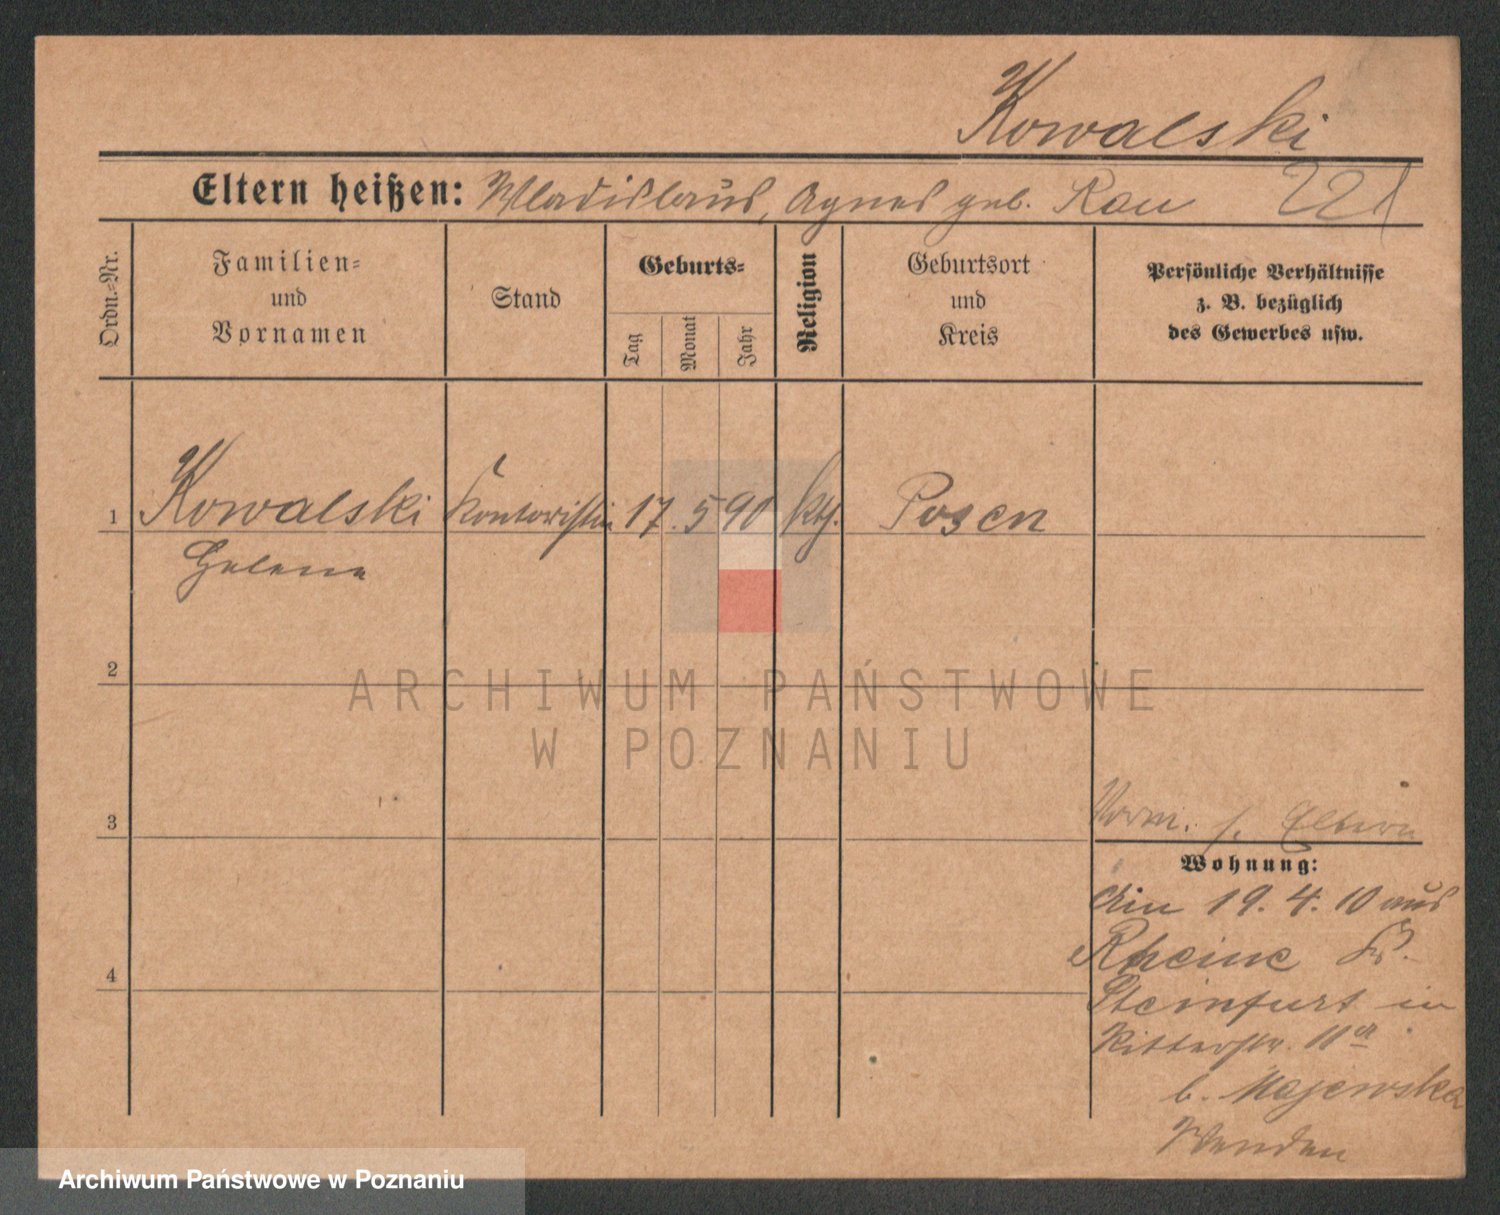 Kowalski
Eltern heißen: Wladislaus, Agnes geb. Rau 221
Ordn.-Nr.
Familien-
und
Vornamen
Stand
Geburts-
Tag
Monat
Jahr
Religion
Geburtsort
und
Kreis
Persönliche Verhältnisse
z. B. bezüglich
des Gewerbes usw.
1 Kowalski Kontoristin 17. 5 90 kth. Posen
Helene
2
ARCHIWUM PAŃSTWOWE
W POZNANIU
3
Vorm. s. Eltern
Wohnung:
Am 19. 4. 10 aus
Rheine Kr.
4
Steinfurt in
Ritterstr. 11a
b. Majewska
Archiwum Państwowe w Poznaniu